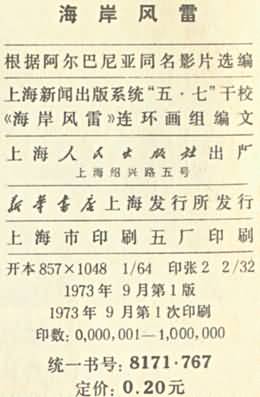 海岸风雷
根据阿尔巴尼亚同名影片选编
上海新闻出版系统“五·七”干校
《海岸风雷》连环画组编文
上海人民出版社出产
上海绍兴路五号
新华书店上海发行所发行
上海市印刷五厂印刷
开本857×1048 1/64 印张2 2/32
1973年9月第1版
1973年9月第1次印刷
印数:0,000,001—1,000,000
统一书号:8171·767
定价:0.20元